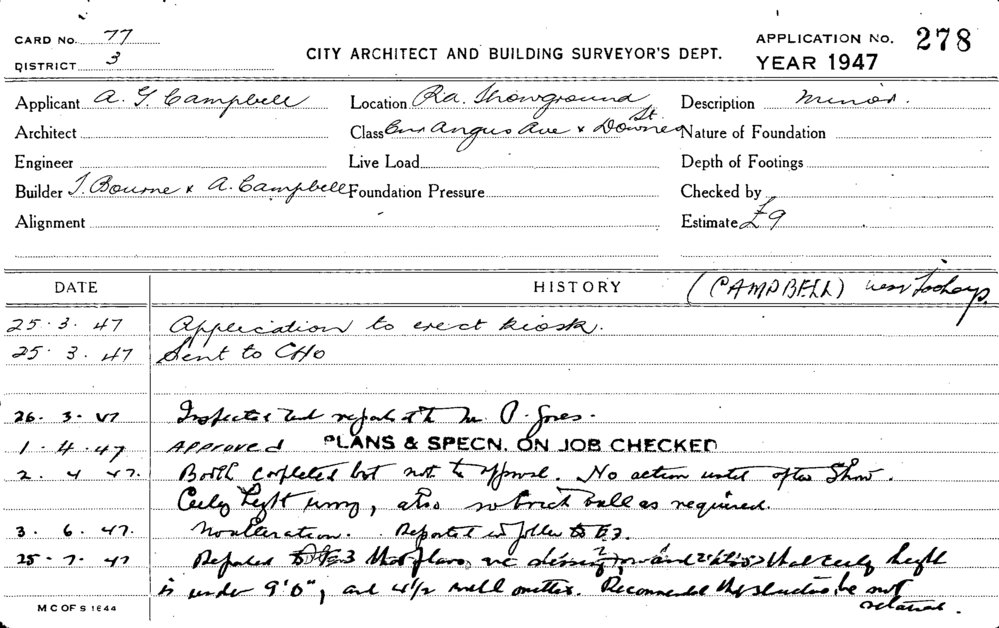 CARD NO. 77
DISTRICT 3
CITY ARCHITECT AND BUILDING SURVEYOR'S DEPT.
APPLICATION NO. 278
YEAR 1947
Applicant A. G. Campbell Location Ra. Showground Description Minor.
Architect Class Cnr Angus Ave & Downes St Nature of Foundation
Engineer Live Load Depth of Footings
Builder T. Bourne & A. Campbell Foundation Pressure Checked by
Alignment Estimate £9
DATE HISTORY (CAMPBELL)
25.3.47 Application to erect kiosk.
25.3.47 Sent to CHO
26.3.47 Inspected and reported to Mr. Jones.
1.4.47 APPROVED PLANS & SPECN. ON JOB CHECKED
2.4.47. Booth completed but not to approval. No action until after Show.
height wrong, also no brick wall as required.
3.6.47. No alteration. Reported in folder to
25.7.47 Reported that plans are missing that height
is under 9'0", and 4½ wall omitted. Recommended the structure be not
retained.
M C OF S 1644